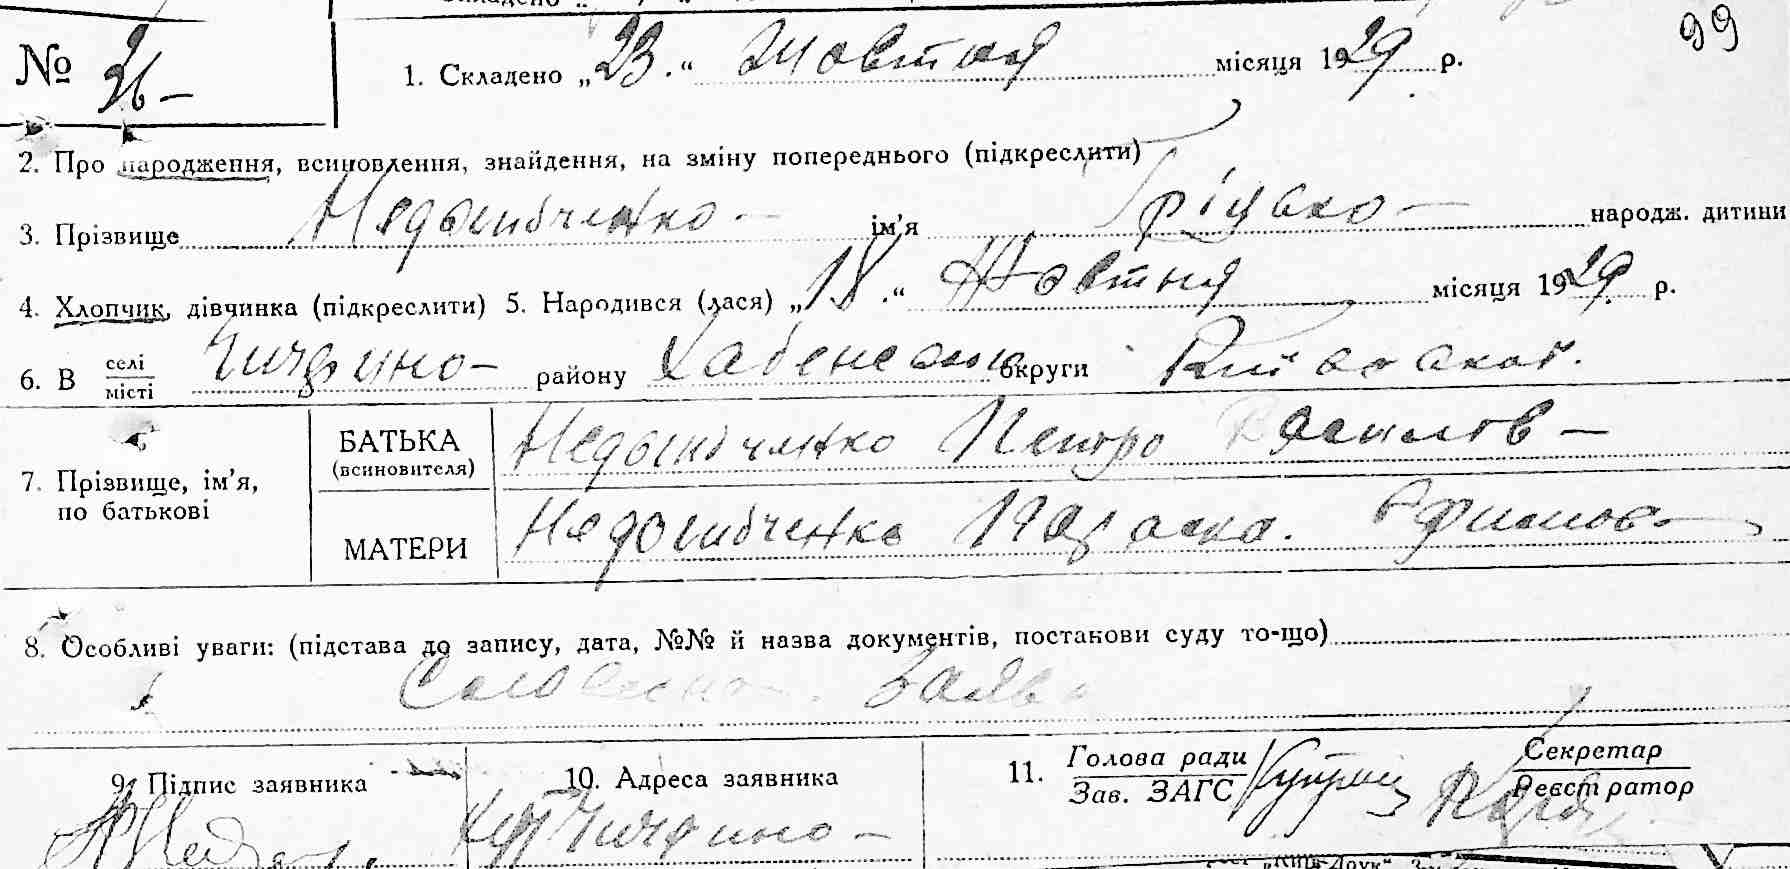 99
№ 26 –
1. Складено „23." Жовтня місяця 1929 р.
2. Про народження, всиновлення, знайдення, на зміну попереднього (підкреслити)
3. Прізвище Недошибченко – ім'я Грицько – народж. дитини
4. Хлопчик, дівчинка (підкреслити) 5. Народився (лася) „18." Жовтня місяця 1929 р.
6. В селі місті району Хабенськ округи Київської.
7. Прізвище, ім'я, по батькові
БАТЬКА (всиновителя) Недошибченко Петро Василов –
МАТЕРИ Недошибченко Параска. Єфимов –
8. Особливі уваги: (підстава до запису, дата, №№ й назва документів, постанови суду то-що)
Словесна заява
9. Підпис заявника
10. Адреса заявника
11. Голова ради Зав. ЗАГС
Секретар Реєстратор